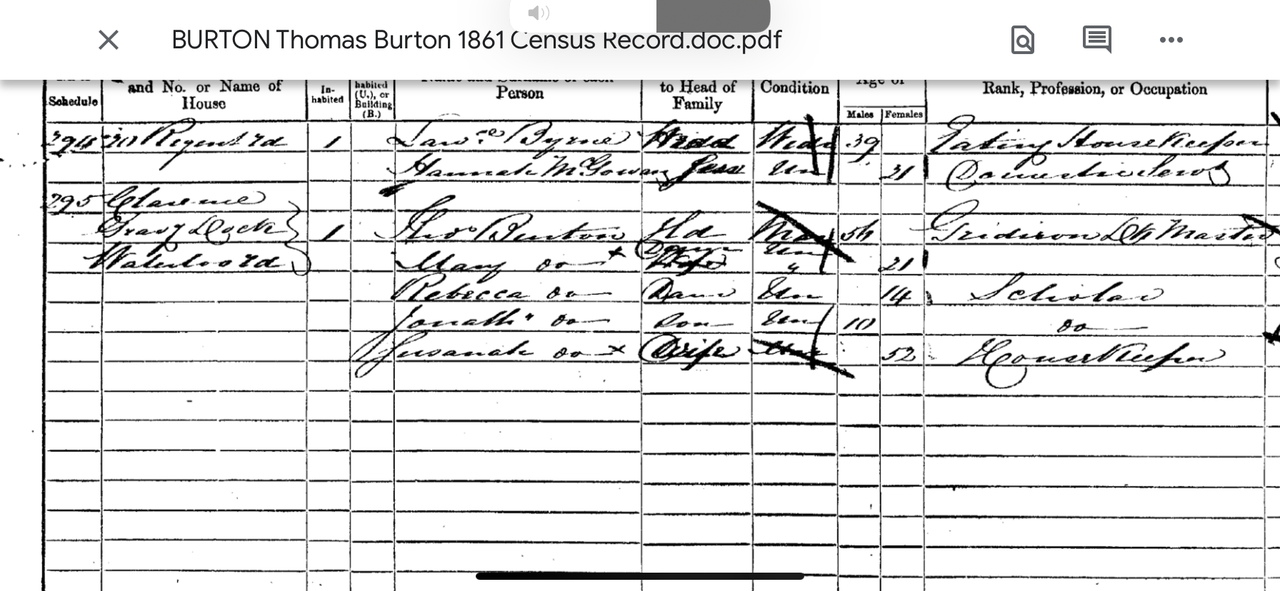 BURTON Thomas Burton 1861 Census Record.doc.pdf
Schedule and No. or Name of House In-habited habited (U.), or Building (B.) Name and Surname of each Person to Head of Family Condition Age of Males Females Rank, Profession, or Occupation
294 30 Regent rd 1 Lawce Byrne Head 39 Eating House Keeper
Hannah McGowan Un 21 Domestic
295 Clarence
Grav'g Dock 1 Thos Burton Hd Mar 54 Gridiron Dk Master
Waterloo rd Mary do 21
Rebecca do Daur Un 14 Scholar
Jonathn do Son Un 10 do
Susanah do Wife 52 House Keeper